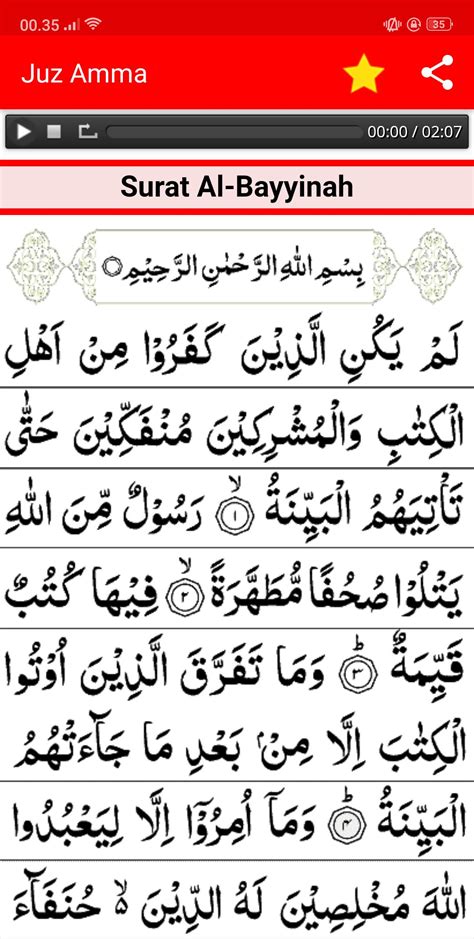 00.35 35
Juz Amma
00:00 / 02:07
Surat Al-Bayyinah
بِسْمِ اللهِ الرَّحْمٰنِ الرَّحِيْمِ
لَمْ يَكُنِ الَّذِيْنَ كَفَرُوْا مِنْ اَهْلِ
الْكِتٰبِ وَالْمُشْرِكِيْنَ مُنْفَكِّيْنَ حَتّٰى
تَأْتِيَهُمُ الْبَيِّنَةُ ۙ ١ رَسُوْلٌ مِّنَ اللهِ
يَتْلُوْا صُحُفًا مُّطَهَّرَةً ۙ ٢ فِيْهَا كُتُبٌ
قَيِّمَةٌ ۗ ٣ وَمَا تَفَرَّقَ الَّذِيْنَ اُوْتُوا
الْكِتٰبَ اِلَّا مِنْۢ بَعْدِ مَا جَآءَتْهُمُ
الْبَيِّنَةُ ۗ ٤ وَمَآ اُمِرُوْٓا اِلَّا لِيَعْبُدُوا
اللهَ مُخْلِصِيْنَ لَهُ الدِّيْنَ ۙ حُنَفَآءَ